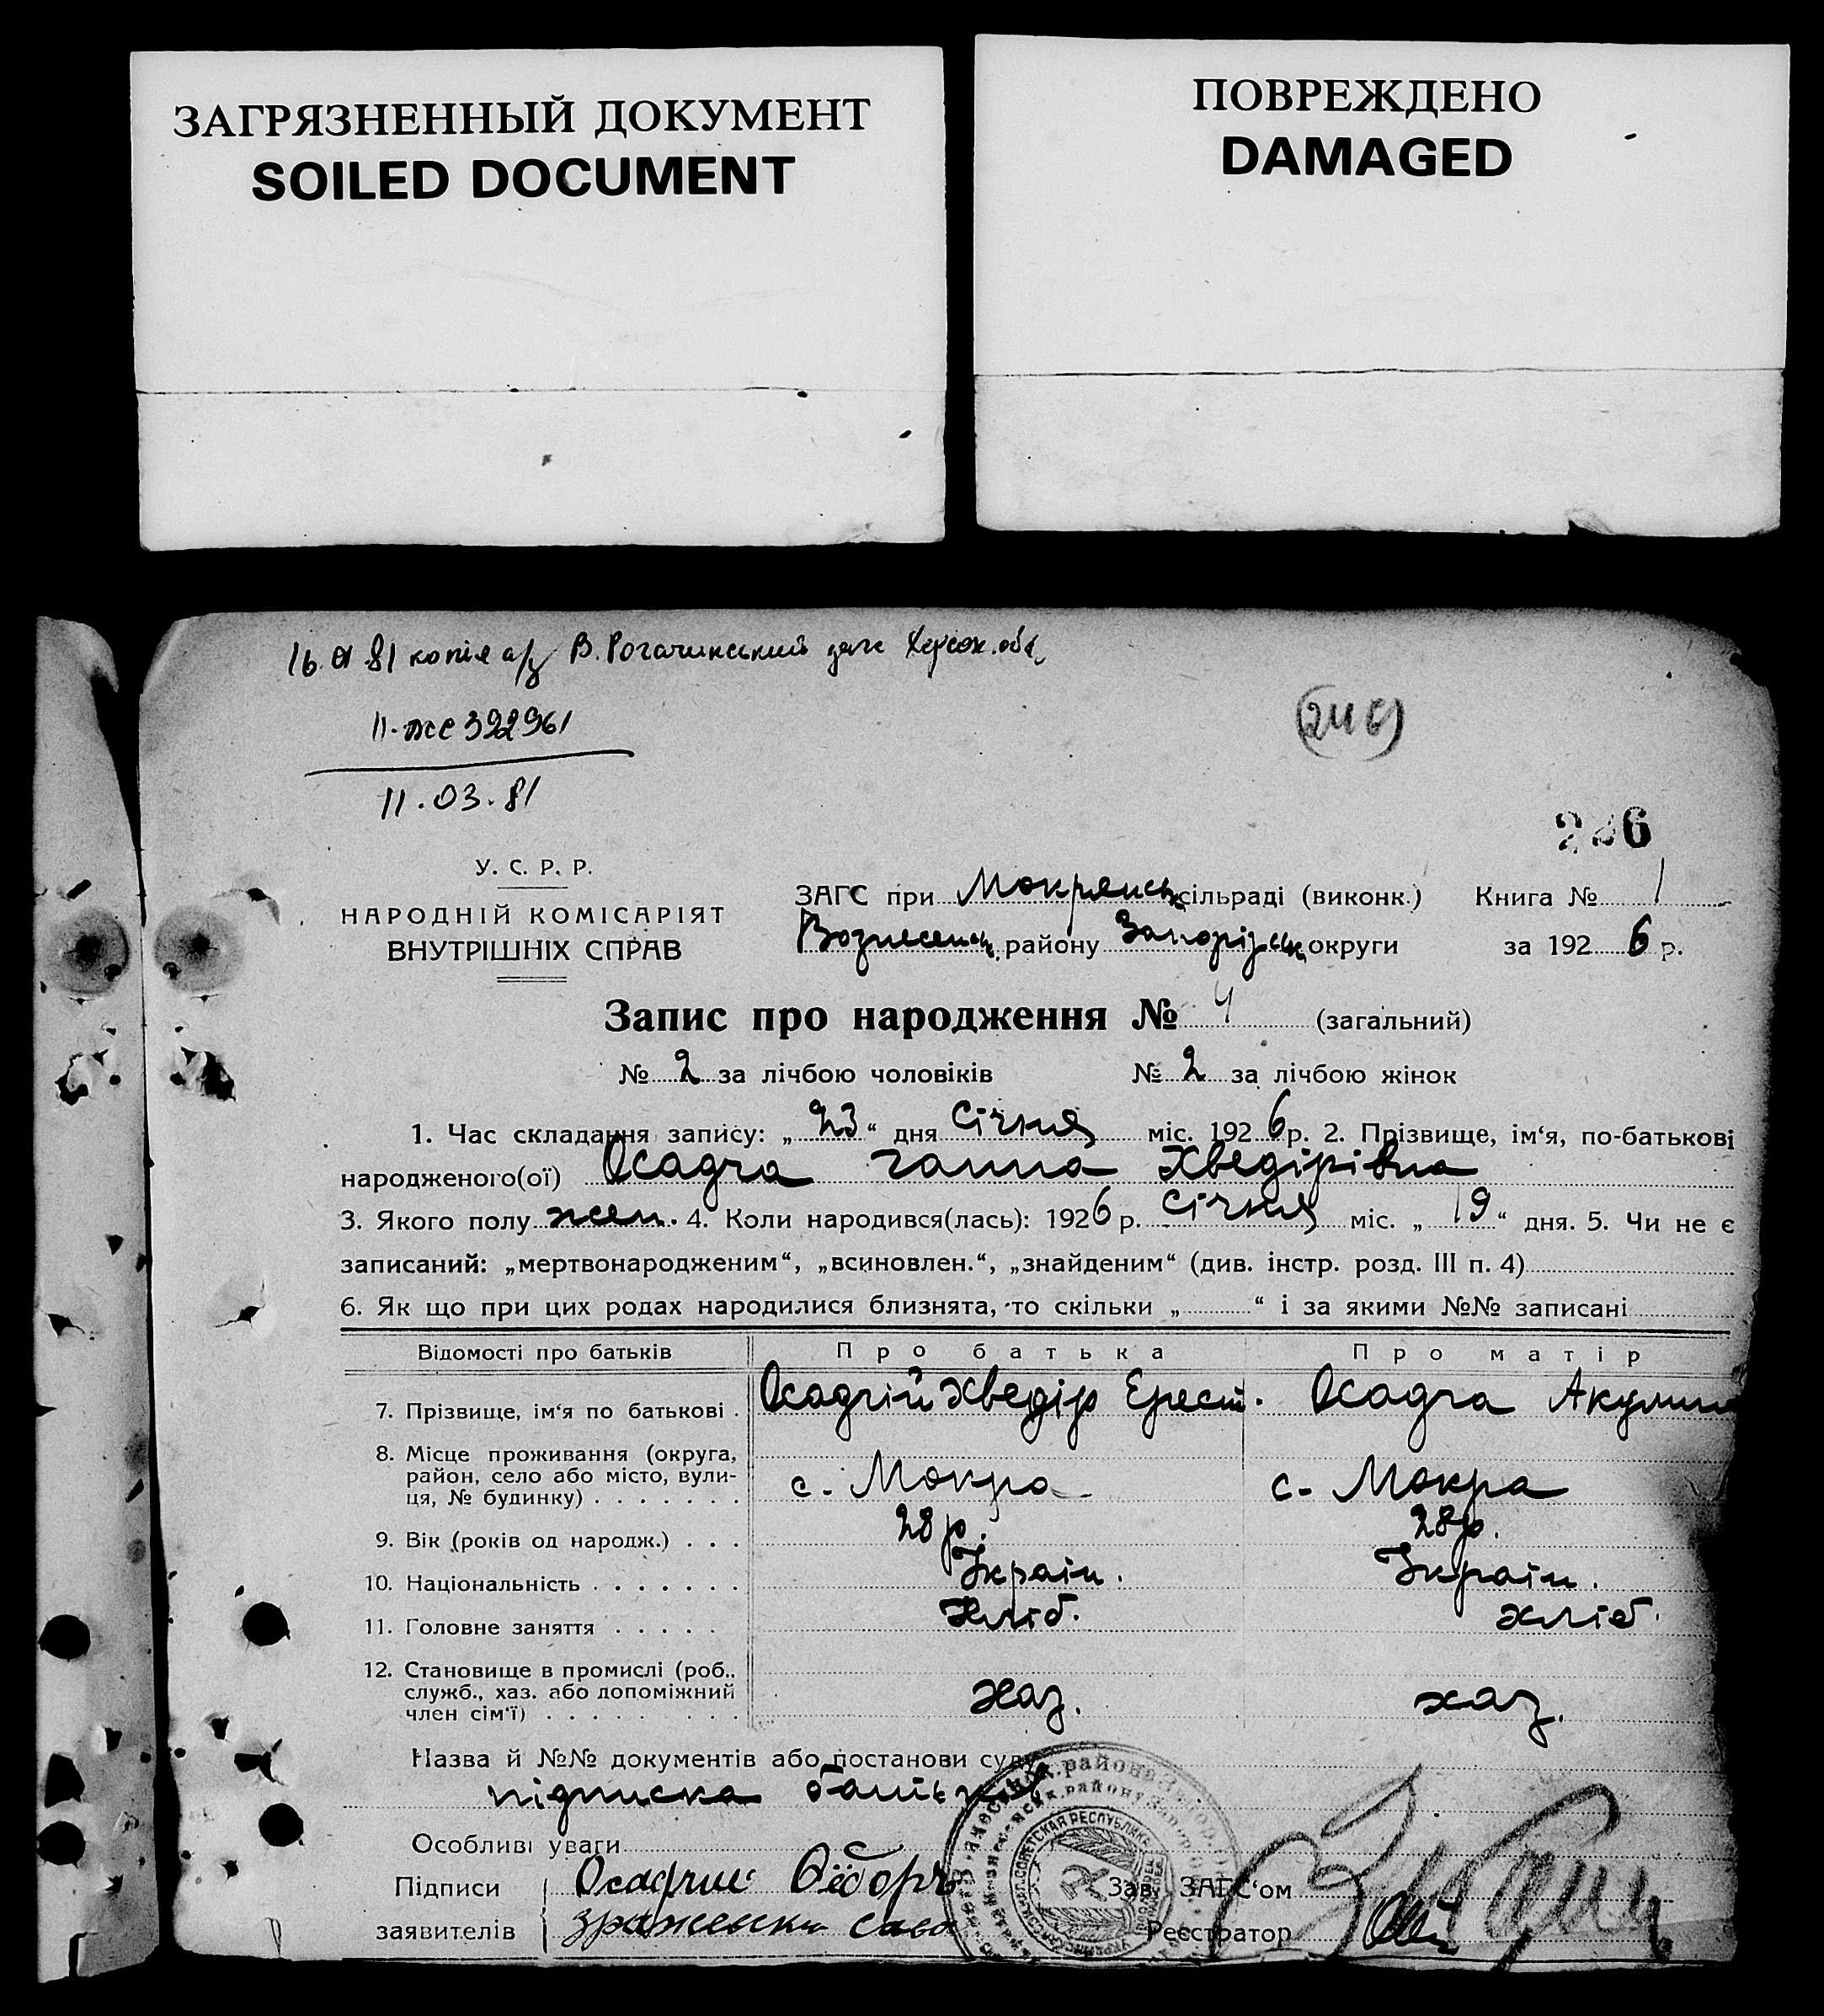 ЗАГРЯЗНЕННЫЙ ДОКУМЕНТ
SOILED DOCUMENT
ПОВРЕЖДЕНО
DAMAGED
81 копія а/з В. Рогачинський загс Херсон. обл.
II-же 392961
11.03.81
У. С. Р. Р.
НАРОДНІЙ КОМІСАРІЯТ
ВНУТРІШНІХ СПРАВ
ЗАГС при Мокрянськ сільраді (виконк.) Книга № 1
Вознесенськ. району Запорізськ округи за 1926 р.
Запис про народження № 4 (загальний)
№ 2 за лічбою чоловіків № 2 за лічбою жінок
1. Час складання запису: „23“ дня Січня міс. 1926 р. 2. Прізвище, ім‘я, по-батькові
народженого(ої) Осадча Ганна Хведірівна
3. Якого полу жен. 4. Коли народився(лась): 1926 р. Січня міс. „19“ дня. 5. Чи не є
записаний: „мертвонародженим“, „всиновлен.“, „знайденим“ (див. інстр. розд. III п. 4)
6. Як що при цих родах народилися близнята, то скільки „ “ і за якими №№ записані
Відомості про батьків Про батька Про матір
7. Прізвище, ім‘я по батькові . Осадчій Хведір Ерест. Осадча Акулина
8. Місце проживання (округа,
район, село або місто, вули-
ця, № будинку) с. Мокра с. Мокра
9. Вік (років од народж.) . . . 28 р. 28 р.
10. Національність Україн. Україн.
11. Головне заняття Хліб. хліб.
12. Становище в промислі (роб.,
служб., хаз. або допоміжний
член сім‘ї) Хаз. хаз.
Назва й №№ документів або постанови суду
підписка батьків
Особливі уваги
Підписи Осадчий Фёдоръ Зав. ЗАГС‘ом
заявителів Реєстратор